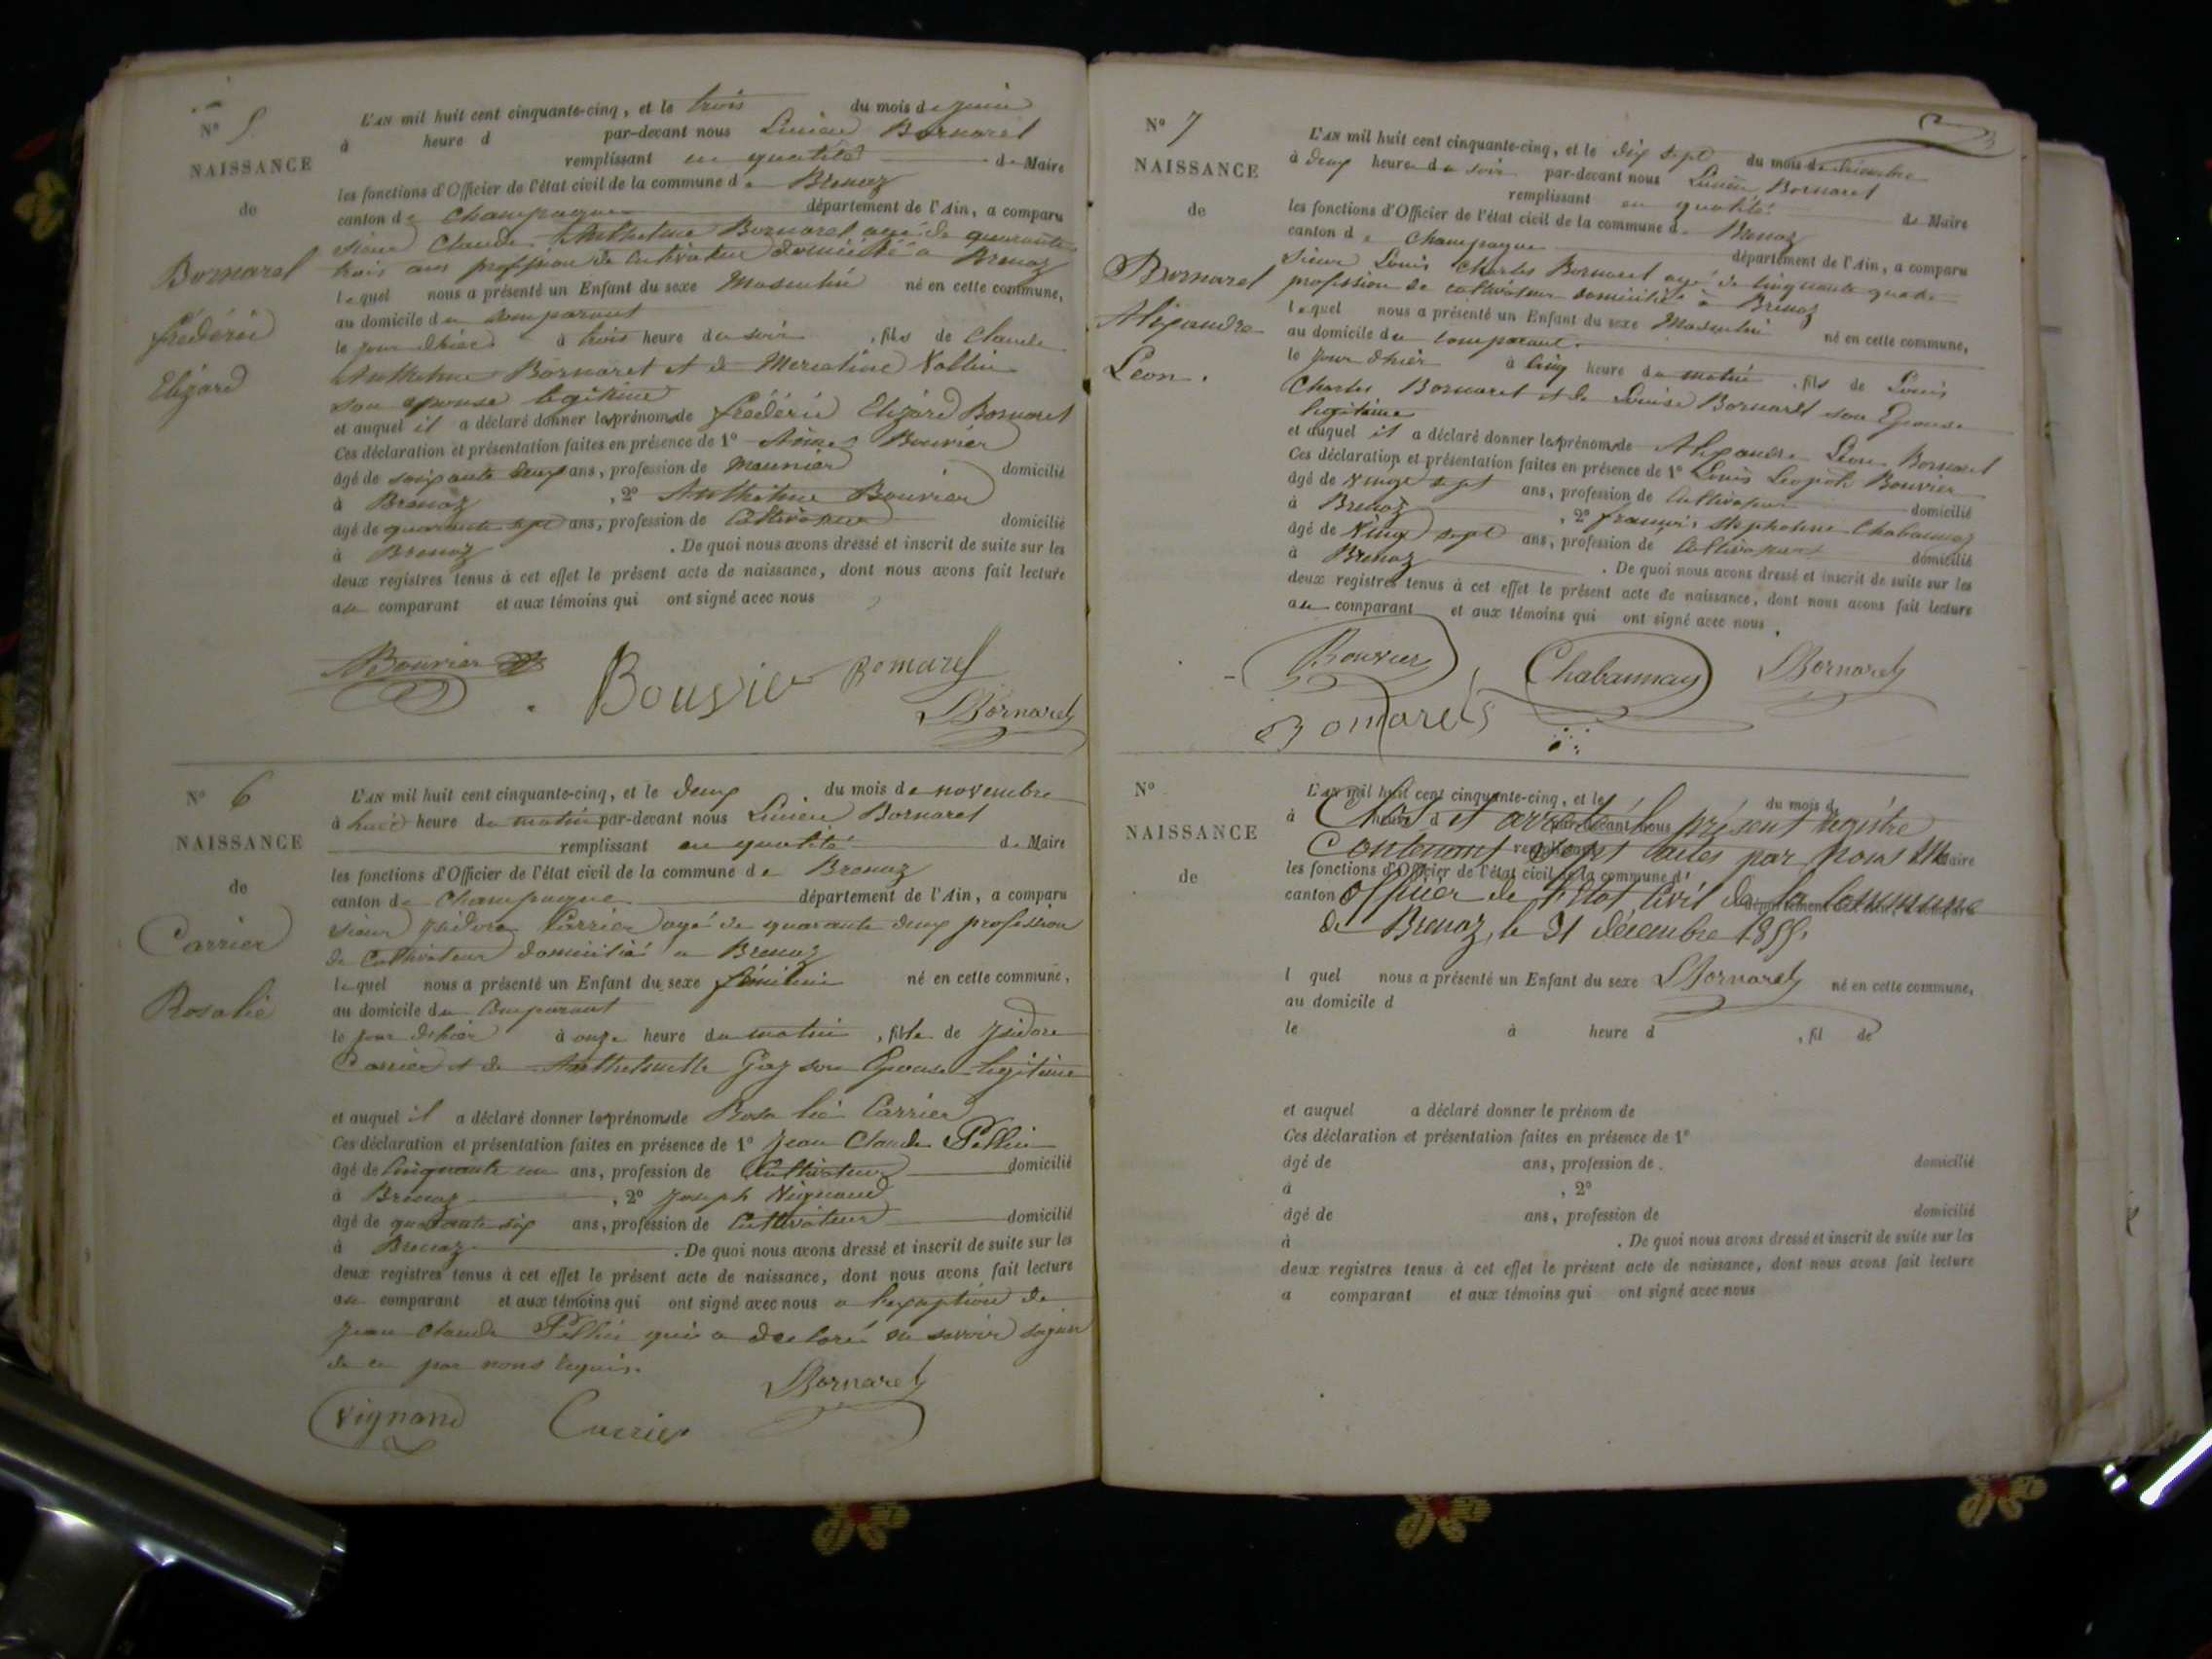 N° 5
NAISSANCE
de
Bornarel
frédéric
Elizard
L'AN mil huit cent cinquante-cinq, et le trois du mois de juin
à heure d par-devant nous Lucien Bornarel
remplissant en qualité de Maire
les fonctions d'Officier de l'état civil de la commune de Brenaz
canton de Champagne département de l'Ain, a comparu
sieur Claude Anthelme Bornarel agé de quarante
trois ans profession de Cultivateur domicilié a Brenaz
lequel nous a présenté un Enfant du sexe Masculin né en cette commune,
au domicile du comparant
le jour d'hier à trois heure du soir, fils de Claude
Anthelme Bornarel et de
son epouse legitime
et auquel il a déclaré donner les prénoms de frédéric Elizard Bornarel
Ces déclaration et présentation faites en présence de 1° Aimé Bouvier
âgé de soixante deux ans, profession de Meunier domicilié
à Brenaz, 2° Anthelme Bouvier
âgé de quarante sept ans, profession de Cultivateur domicilié
à Brenaz. De quoi nous avons dressé et inscrit de suite sur les
deux registres tenus à cet effet le présent acte de naissance, dont nous avons fait lecture
au comparant et aux témoins qui ont signé avec nous
Bouvier Bouvier Bornarel
LBornarel
N° 6
NAISSANCE
de
Carrier
Rosalie
L'AN mil huit cent cinquante-cinq, et le deux du mois de novembre
à huit heure du matin par-devant nous Lucien Bornarel
remplissant en qualité de Maire
les fonctions d'Officier de l'état civil de la commune de Brenaz
canton de Champagne département de l'Ain, a comparu
sieur Ysidore Carrier agé de quarante deux profession
de Cultivateur domicilié a Brenaz
lequel nous a présenté un Enfant du sexe féminin né en cette commune,
au domicile du Comparant
le jour d'hier à onze heure du matin, fille de Ysidore
Carrier et de Anthelmette Gay son Epouse legitime
et auquel il a déclaré donner les prénoms de Rosalie Carrier
Ces déclaration et présentation faites en présence de 1° Jean Claude Pellin
âgé de cinquante un ans, profession de Cultivateur domicilié
à Brenaz, 2° Joseph Vignand
âgé de quarante six ans, profession de Cultivateur domicilié
à Brenaz. De quoi nous avons dressé et inscrit de suite sur les
deux registres tenus à cet effet le présent acte de naissance, dont nous avons fait lecture
au comparant et aux témoins qui ont signé avec nous a l'exception de
Jean Claude Pellin qui a declaré ne savoir signer
de ce par nous requis.
LBornarel
Vignand Carrier
N° 7
NAISSANCE
de
Bornarel
Alexandre
Leon.
L'AN mil huit cent cinquante-cinq, et le dix sept du mois de décembre
à deux heure du soir par-devant nous Lucien Bornarel
remplissant en qualité de Maire
les fonctions d'Officier de l'état civil de la commune de Brenaz
canton de Champagne département de l'Ain, a comparu
sieur Louis Charles Bornarel agé de cinquante quatre
profession de cultivateur domicilié à Brenaz
lequel nous a présenté un Enfant du sexe Masculin né en cette commune,
au domicile du comparant.
le jour d'hier à cinq heure du matin, fils de Louis
Charles Bornarel et de Louise Bornarel son Epouse
legitime
et auquel il a déclaré donner les prénoms de Alexandre Léon Bornarel
Ces déclaration et présentation faites en présence de 1° Louis Leopold Bouvier
âgé de vingt sept ans, profession de Cultivateur domicilié
à Brenaz, 2° françois Chabannay
âgé de Vingt sept ans, profession de Cultivateur domicilié
à Brenaz. De quoi nous avons dressé et inscrit de suite sur les
deux registres tenus à cet effet le présent acte de naissance, dont nous avons fait lecture
au comparant et aux témoins qui ont signé avec nous.
Bouvier Chabannay LBornarel
Bornarel
N°
NAISSANCE
de
L'AN mil huit cent cinquante-cinq, et le du mois d
à heure d par-devant nous
Clos et arrêté le présent registre
Contenant sept actes par nous Maire
remplissant Maire
les fonctions d'Officier de l'état civil de la commune d
canton département de l'Ain, a comparu
Officier de l'Etat Civil de la Commune
de Brenaz, le 31 décembre 1855.
l quel nous a présenté un Enfant du sexe né en cette commune,
LBornarel
au domicile d
le à heure d, fil de
et auquel a déclaré donner le prénom de
Ces déclaration et présentation faites en présence de 1°
âgé de ans, profession de domicilié
à, 2°
âgé de ans, profession de domicilié
à. De quoi nous avons dressé et inscrit de suite sur les
deux registres tenus à cet effet le présent acte de naissance, dont nous avons fait lecture
a comparant et aux témoins qui ont signé avec nous